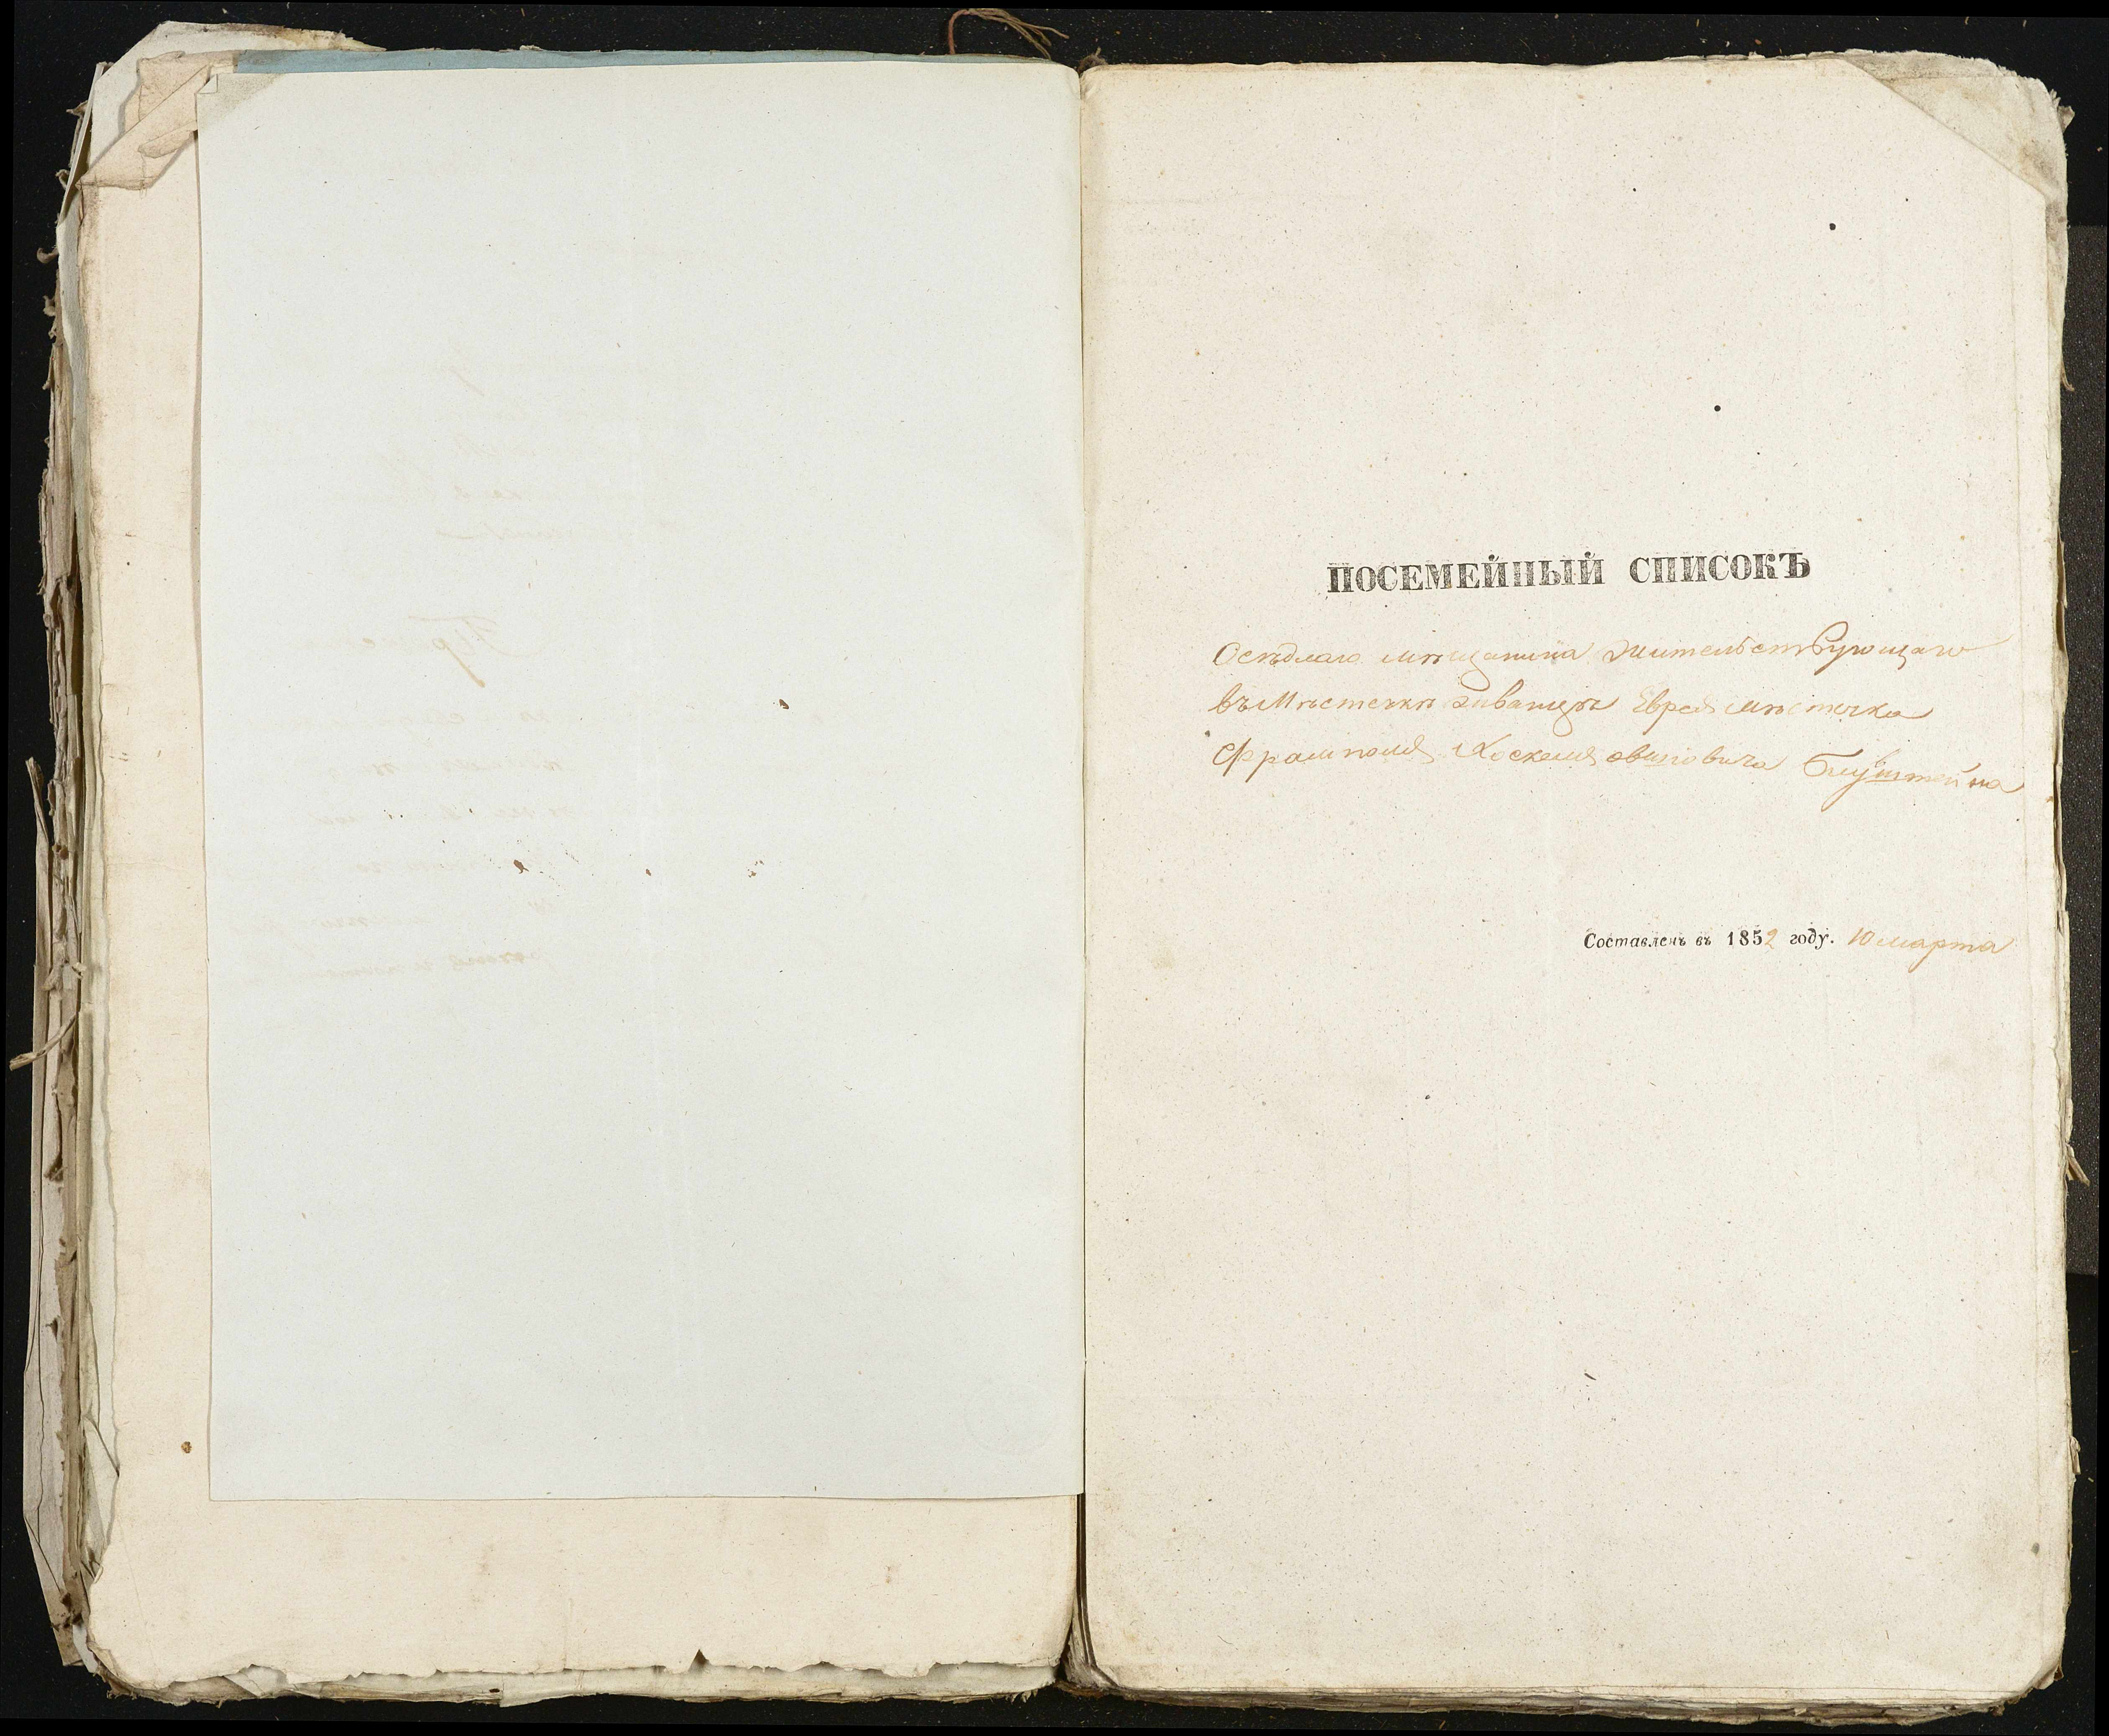 ПОСЕМЕЙНЫЙ СПИСОКЪ
Осѣдлаго мѣщанина жительствующаго
въ Мѣстечкѣ Званцѣ Еврея мѣстечка
Фрамполя Хаскеля Блуштейна
Составленъ въ 1852 году. 10 марта